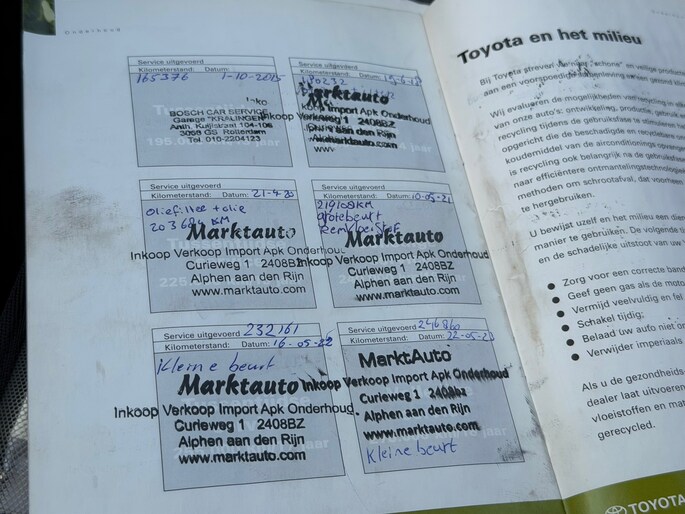 Onderhoud
Service uitgevoerd
Kilometerstand: Datum:
165376 1-10-2015
BOSCH CAR SERVICE
Garage "KRALINGEN"
Anth. Kuijlstraat 104-106
3066 GS Rotterdam
Tel. 010-2204123
Service uitgevoerd
Kilometerstand: Datum:
Marktauto
Inkoop Verkoop Import Apk Onderhoud
Curieweg 1 2408BZ
Alphen aan den Rijn
www.marktauto.com
Service uitgevoerd
Kilometerstand: Datum: 21-4-20
oliefilter + olie
203684 KM
Marktauto
Inkoop Verkoop Import Apk Onderhoud
Curieweg 1 2408BZ
Alphen aan den Rijn
www.marktauto.com
Service uitgevoerd
Kilometerstand: Datum: 10-05-21
219108KM
grote beurt
Marktauto
Inkoop Verkoop Import Apk Onderhoud
Curieweg 1 2408BZ
Alphen aan den Rijn
www.marktauto.com
Service uitgevoerd 232161
Kilometerstand: Datum: 16-05-22
Kleine beurt
Marktauto
Inkoop Verkoop Import Apk Onderhoud
Curieweg 1 2408BZ
Alphen aan den Rijn
www.marktauto.com
Service uitgevoerd 246860
Kilometerstand: Datum: 22-05-23
MarktAuto
Inkoop Verkoop Import Apk Onderhoud
Curieweg 1 2408bz
Alphen aan den Rijn
www.marktauto.com
Kleine beurt
Toyota en het milieu
Bij Toyota streven
aan een voorspoedige
Wij evalueren de mogelijkheden
van onze auto's: ontwikkeling, productie, gebruik en
recycling tijdens de gebruiksfase te
opgericht die de beschadigde en
koudemiddel van de airconditioning
is recycling ook belangrijk na de gebruiksfase
naar efficiëntere ontmantelingstechnologie
methoden om schrootafval, dat voorheen
te hergebruiken.
U bewijst uzelf en het milieu een dienst
manier te gebruiken. De volgende
en de schadelijke uitstoot van uw
Zorg voor een correcte band
Geef geen gas als de moto
Vermijd veelvuldig en fel
Schakel tijdig;
Belaad uw auto niet on
Verwijder imperiaals
Als u de gezondheids-
dealer laat uitvoeren
vloeistoffen en mat
gerecycled.
TOYOTA